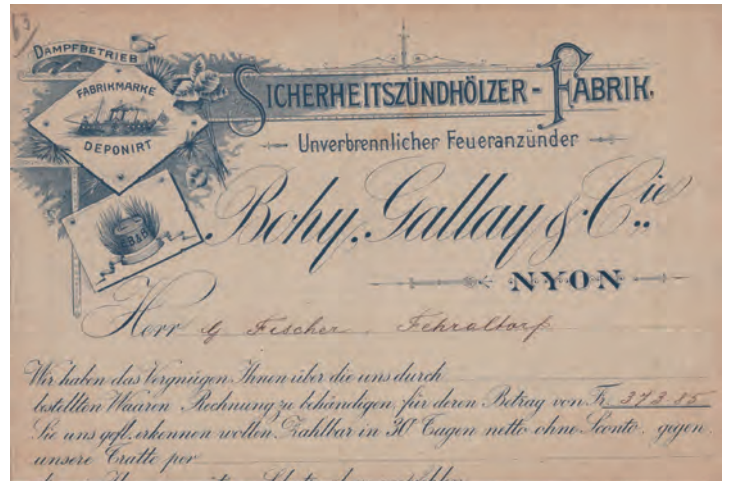 63
DAMPFBETRIEB
FABRIKMARKE
DEPONIRT
B&B
SICHERHEITSZÜNDHÖLZER - FABRIK.
Unverbrennlicher Feueranzünder
Bohy, Gallay & Cie.
NYON
Herr G Fischer, Fehraltorf
Wir haben das Vergnügen Ihnen über die uns durch
bestellten Waaren Rechnung zu behändigen für deren Betrag von Fr. 373.85
Sie uns gefl. erkennen wollen. Zahlbar in 30 Tagen netto ohne Sconto, gegen
unsere Tratte per